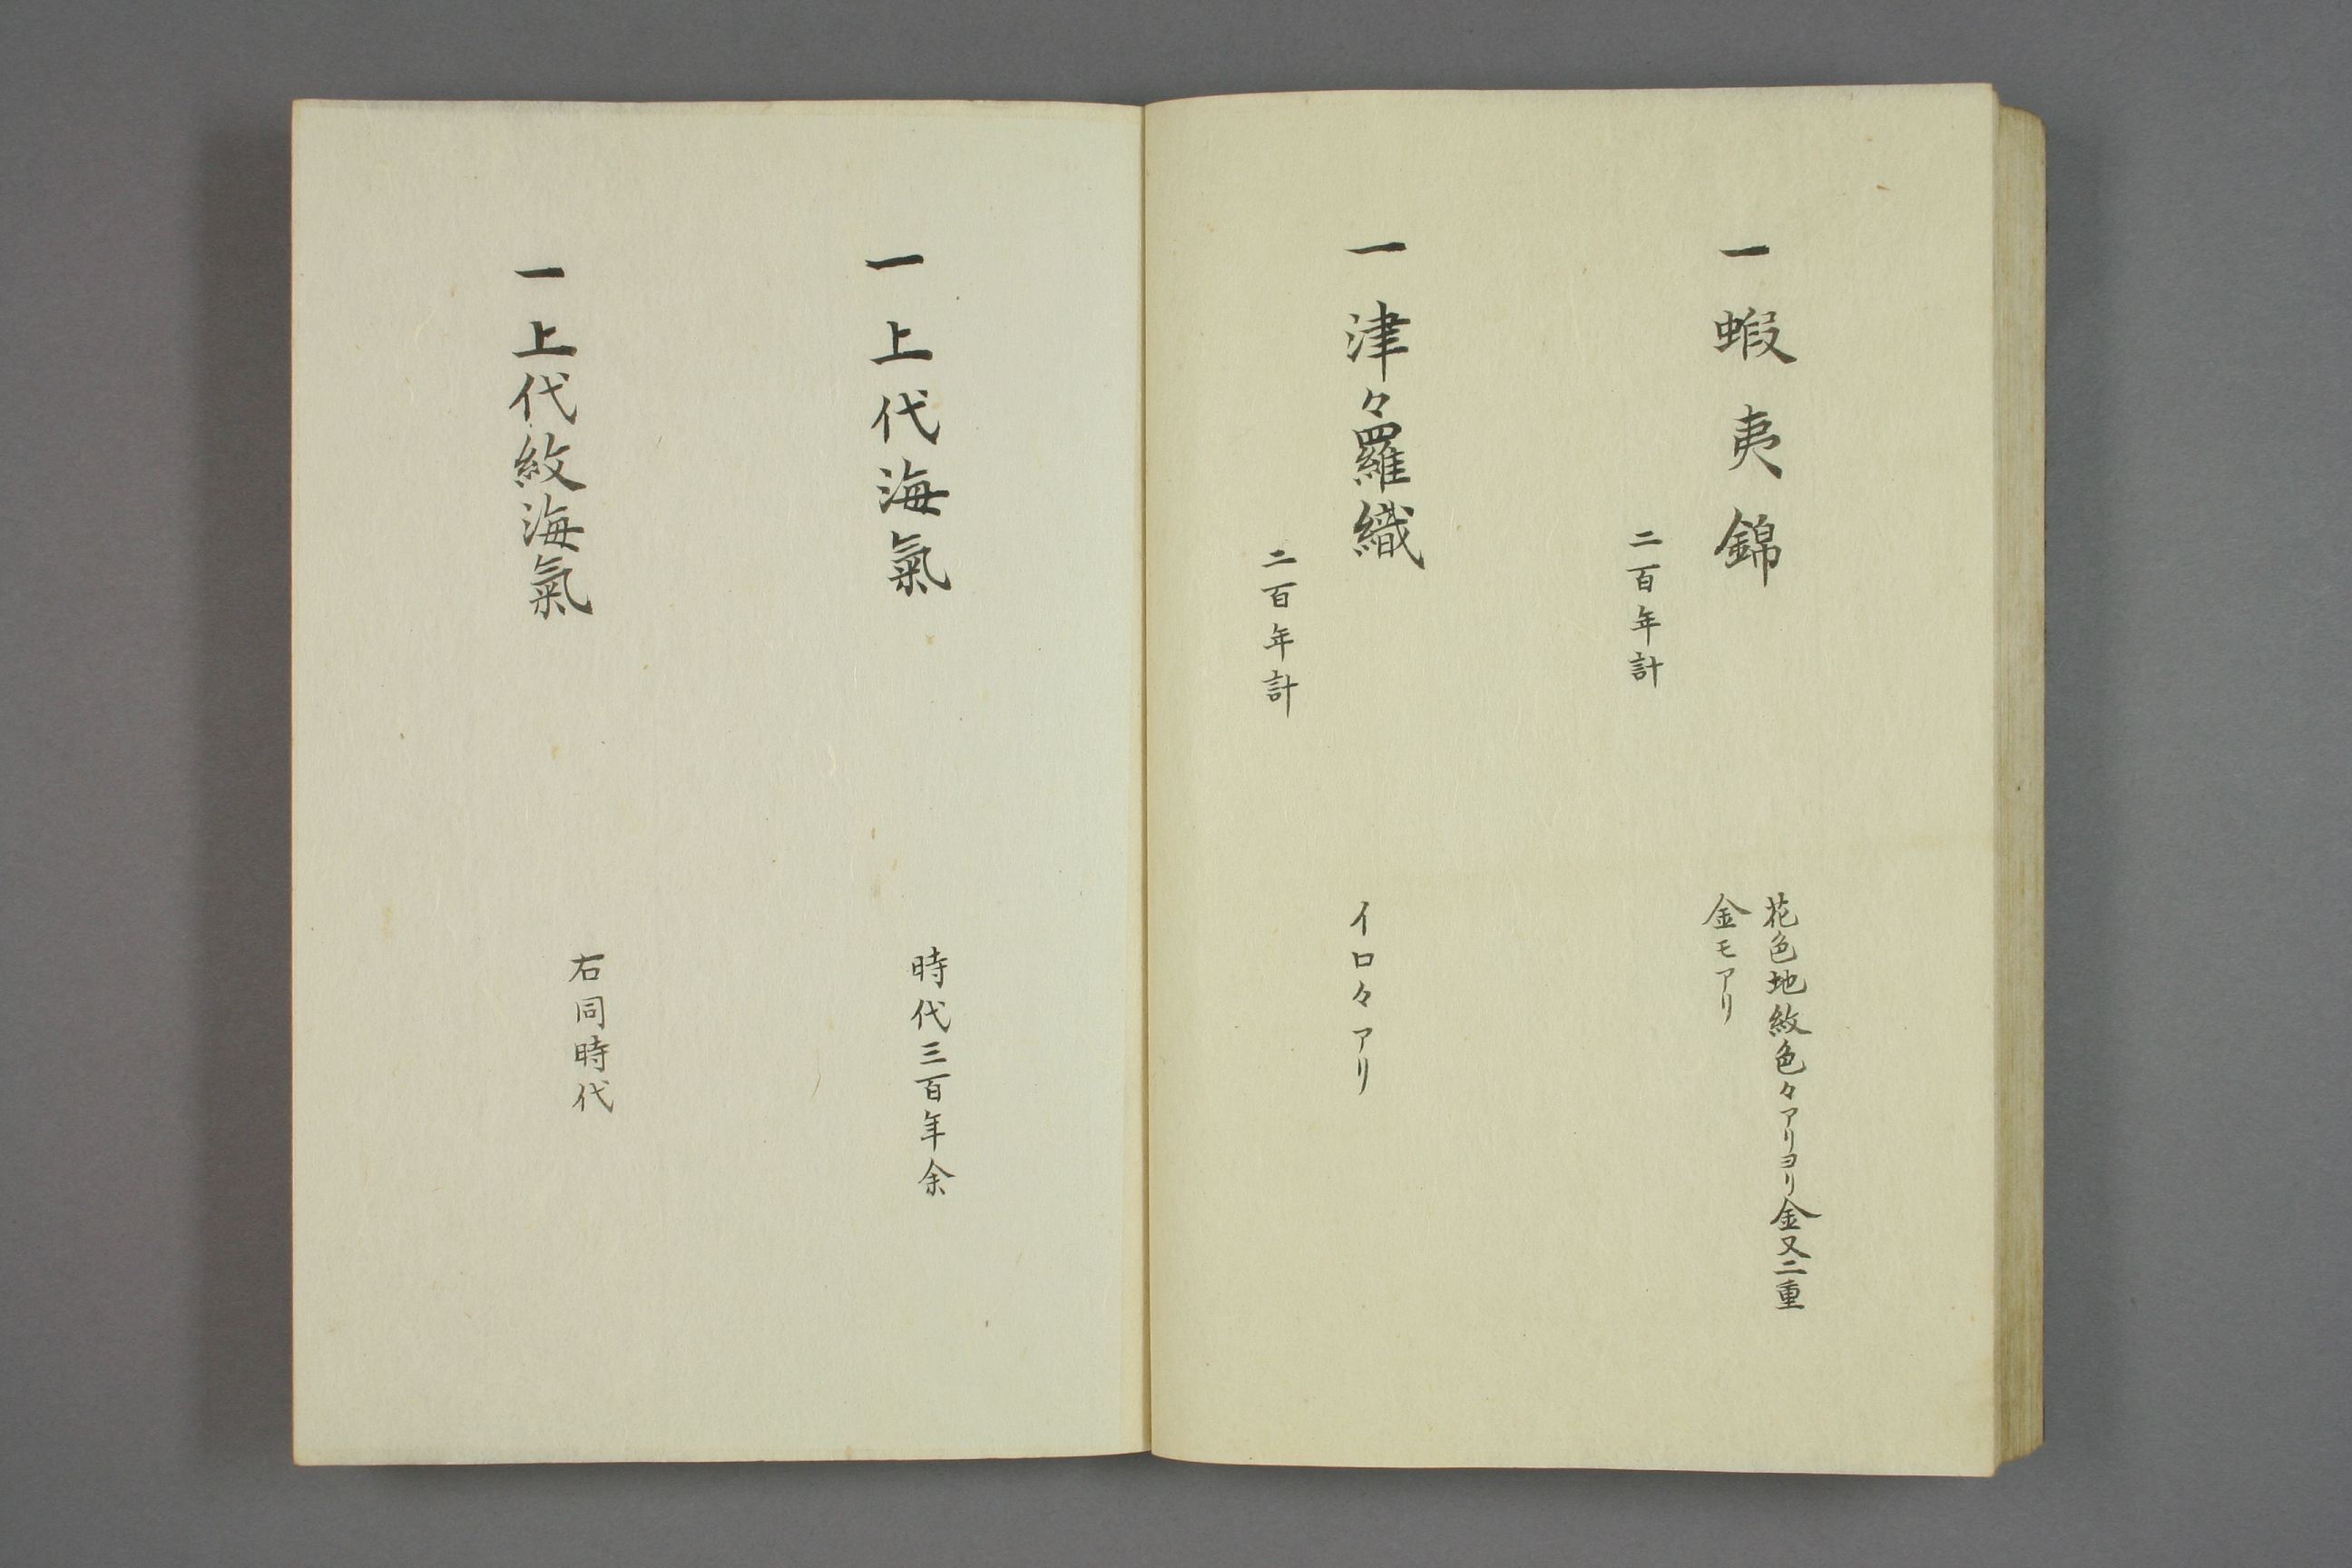 一 蝦夷錦
花色地紋色々アリヨリ金又二重
金モアリ
二百年計
一 津々羅織
イロ々アリ
二百年計
一 上代海氣
時代三百年余
一 上代紋海氣
右同時代